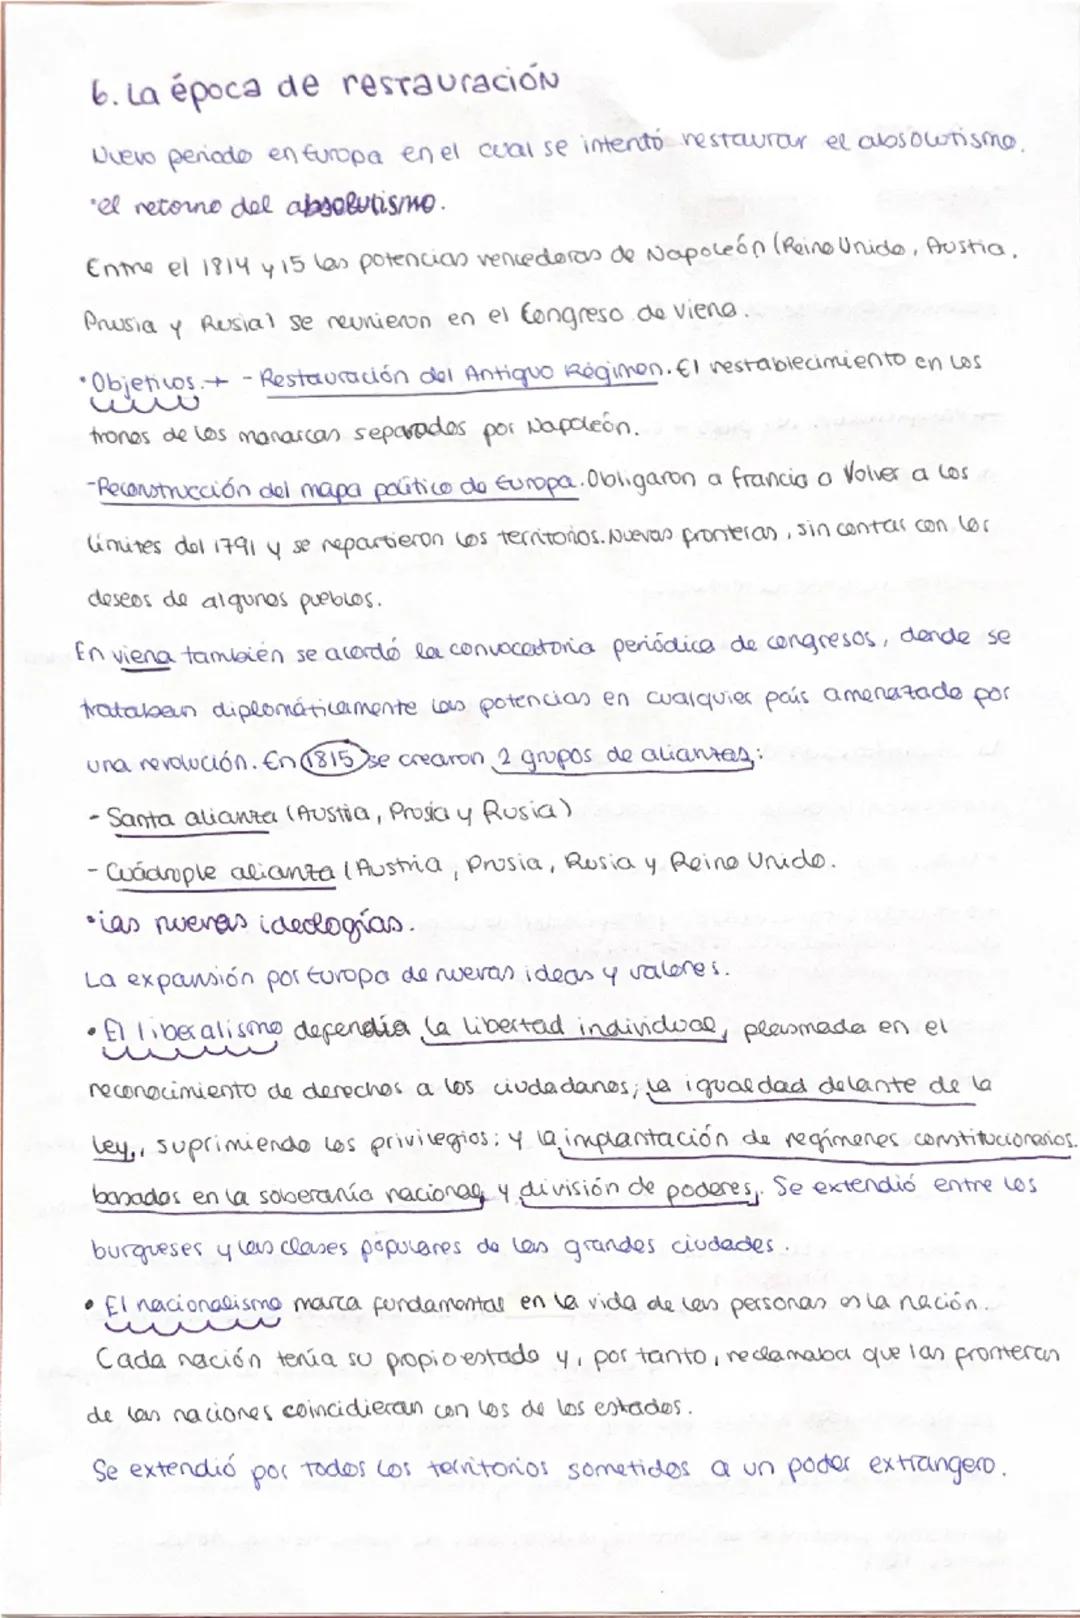 6. La época de restauración
Nuevo periodo en Europa en el cual se intentó restaurar el absolutismo.
·el retorno del absolutismo.
Entre el 1814 y 15 las potencias vencedoras de Napoleón (Reino Unido, Austia,
Prusia y Rusia) se reunieron en el Congreso de viena.
·Objetivos.→ - Restauración del Antiguo Régimen. El restablecimiento en los
tronos de los monarcas separados por Napoleón.
-Reconstrucción del mapa político de Europa. Obligaron a francia a Volver a los
límites del 1791 y se repartieron los territorios. Nuevas fronteras, sin contar con los
deseos de algunos pueblos.
En viena también se acordó la convocatoria periódica de congresos, donde se
trataban diplomáticamente las potencias en cualquier país amenazado por
una revolución. En 1815 se crearon 2 grupos de alianzas:
- Santa alianza (Austia, Prusia y Rusia)
- Cuádruple alianza (Austria, Prusia, Rusia y Reino Unido.
·las nuevas ideologías.
La expansión por Europa de nuevas ideas y valores.
· El liberalismo defendía la libertad individual, plasmada en el
reconocimiento de derechos a los ciudadanos; la igualdad delante de la
ley,, suprimiendo los privilegios; y la implantación de regímenes constitucionarios.
basados en la soberanía nacional y división de poderes,. Se extendió entre los
burgueses y las clases populares de las grandes ciudades.
· El nacionalismo marca fundamental en la vida de las personas es la nación.
Cada nación tenía su propio estado y, por tanto, reclamaba que las fronteras
de las naciones coincidieran con los de los estados.
Se extendió por todos los territorios sometidos a un poder extrangero.